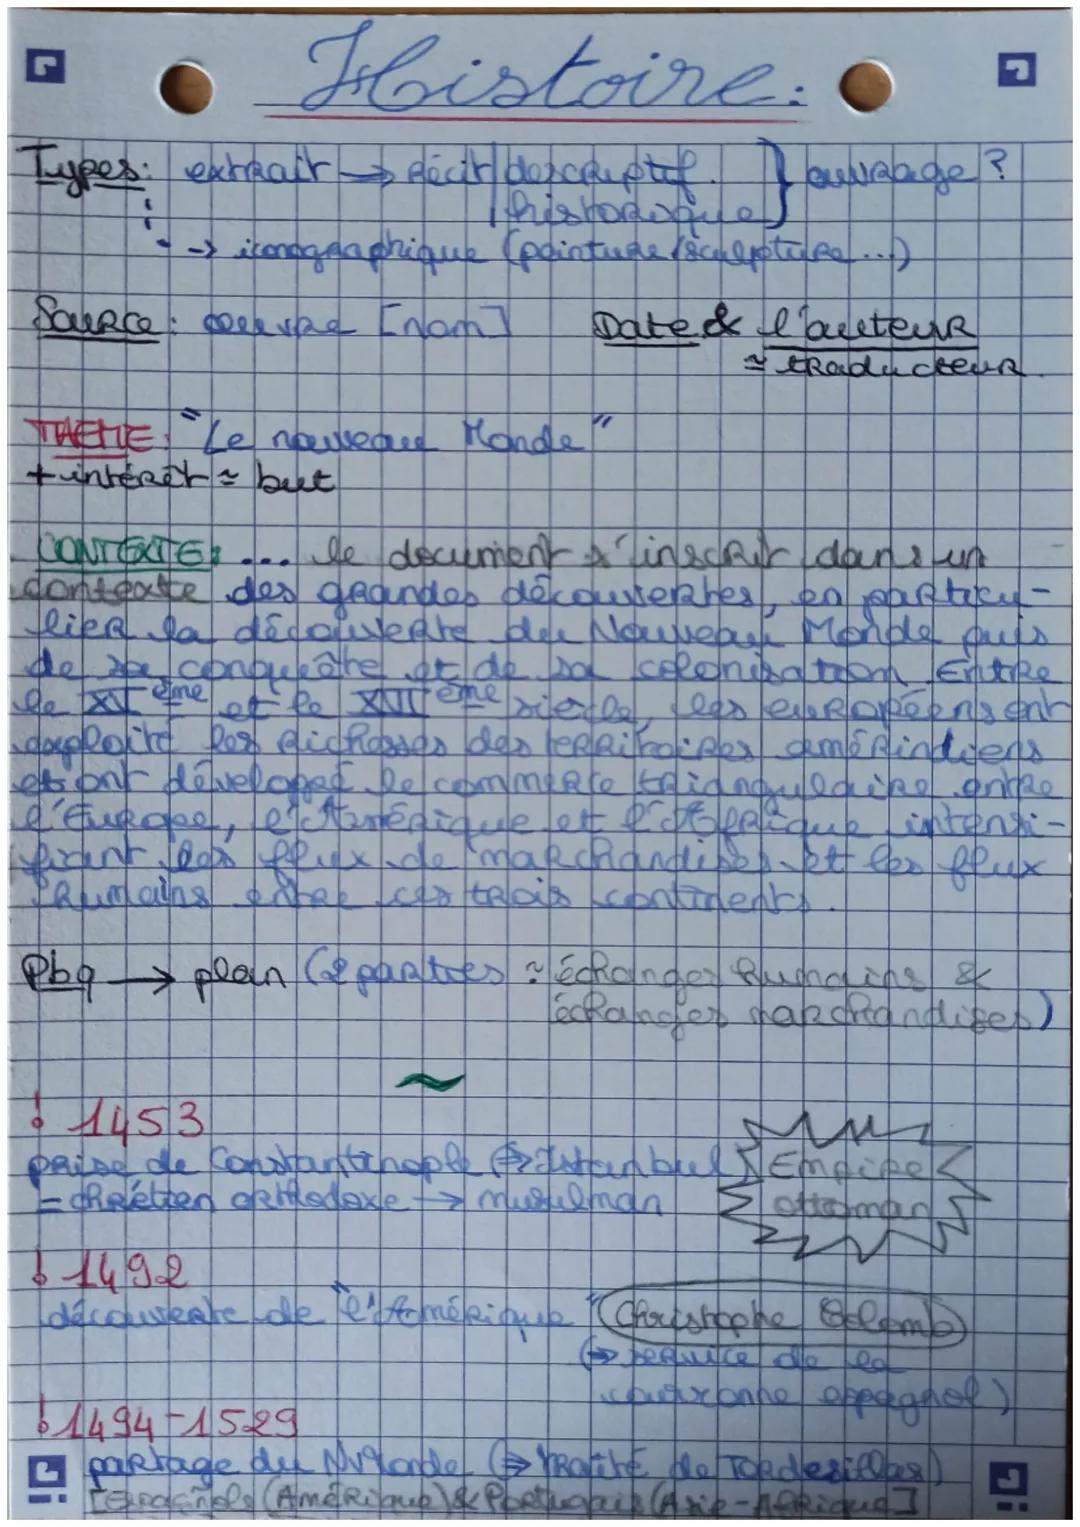 Histoire.
Types: extrait → récit/descriptif } ouvrage ?
/historique
-> iconographique (peinture/sculpture...)
Source: oeuvre [nom] Date & l'auteur
≃ traducteur
THEME: "Le nouveau Monde"
+ intérêt ≃ but
CONTEXTE: ... le document s'inscrit dans un
contexte des grandes découvertes, en particu-
lier la découverte du Nouveau Monde puis
de sa conquête et de sa colonisation. Entre
le XVème et le XVIIème siècle, les européens ont
exploité les richesses des territoires amérindiens
et ont développé le commerce triangulaire entre
l'Europe, l'Amérique et l'Afrique intensi-
fiant les flux de marchandises et les flux
humains entre ces trois continents.
Pbq → plan (2 parties ≃ échanges humains &
échanges marchandises)
~
! 1453
prise de Constantinople (→ Istanbul) Empire
= chrétien orthodoxe → musulman ottoman
! 1492
découverte de "l'Amérique" Christophe Colomb
(→ service de la
couronne espagnol)
! 1494-1529
partage du Nv Monde (→ traité de Tordesillas)
[Espagnols (Amérique) & Portugais (Asie-Afrique]